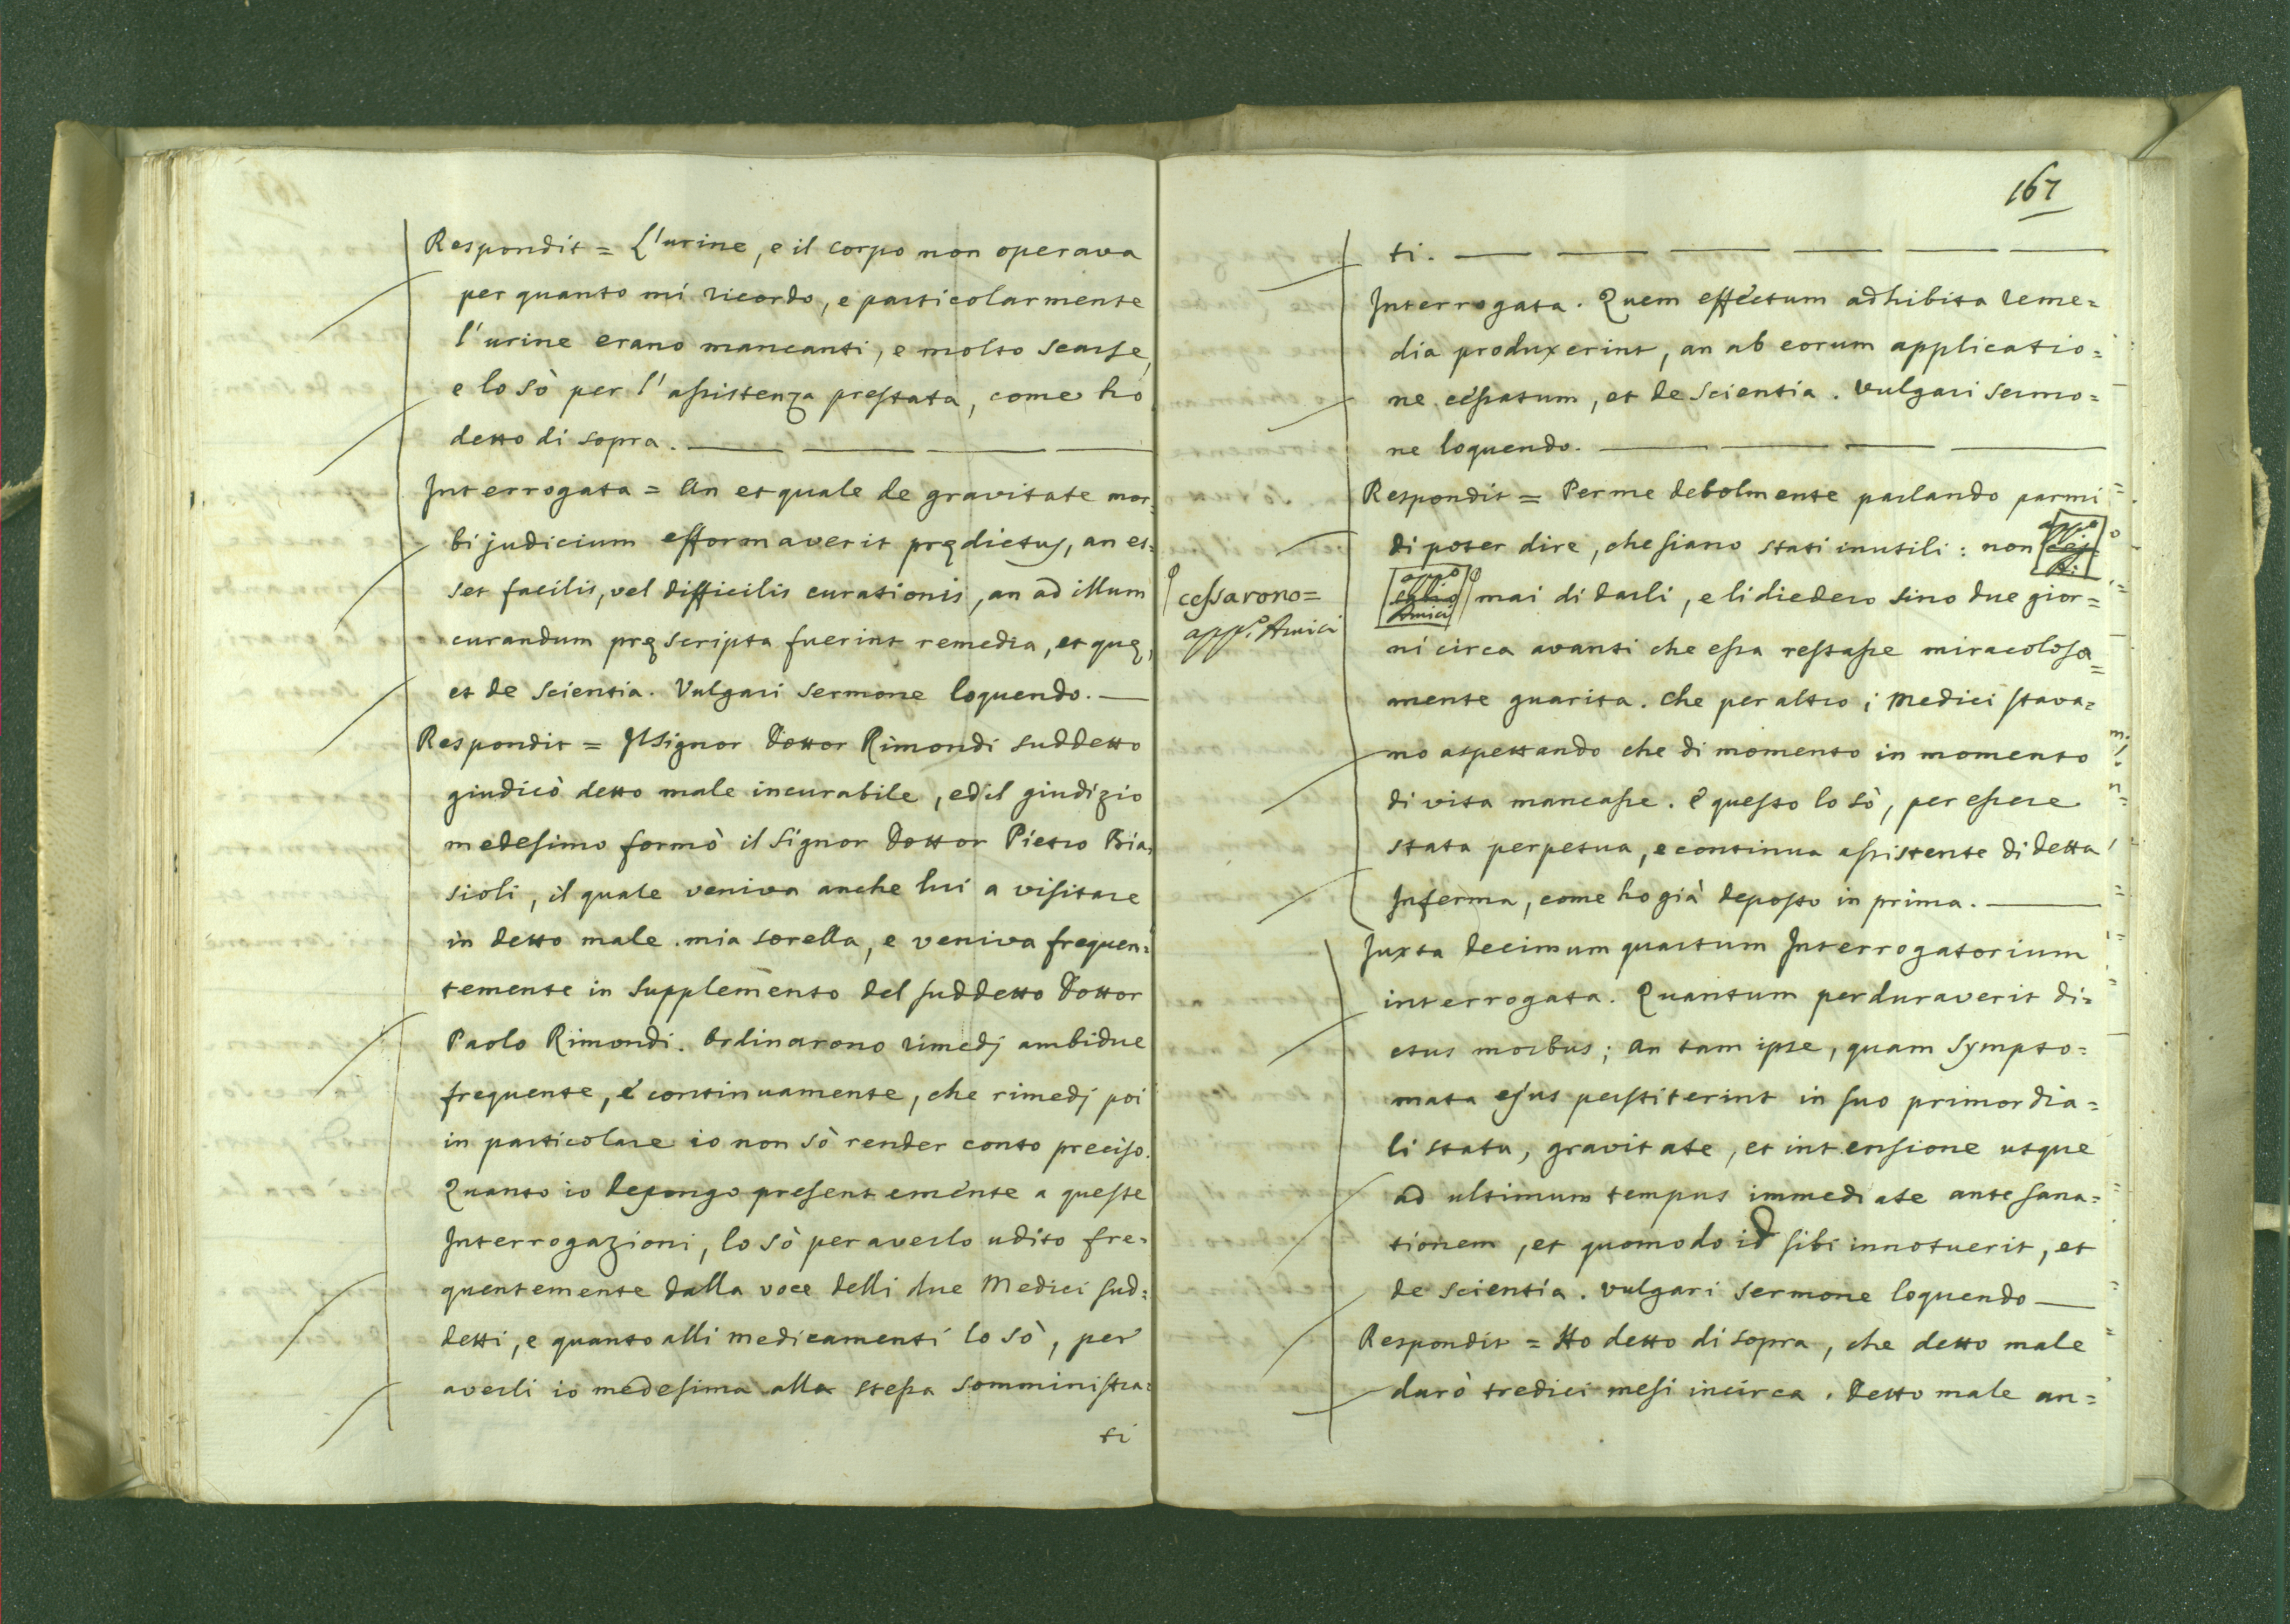 Respondit = L'urine, e il corpo non operava
per quanto mi ricordo, e particolarmente
l'urine erano mancanti, e molto scarse,
e lo sò per l'assistenza prestata, come ho
detto di sopra.
Interrogata = An et quale de gravitate mor=
bi judicium efformaverit prędictus, an es=
set facilis, vel difficilis curationis, an ad illum
curandum pręscripta fuerint remedia, et quę,
et de scientia. Vulgari sermone loquendo.
Respondit = Il Signor Dottor Rimondi suddetto
giudicò detto male incurabile, ed il giudizio
medesimo formò il Signor Dottor Pietro Bia=
sioli, il quale veniva anche lui a visitare
in detto male mia sorella, e veniva frequen=
temente in supplemento del suddetto Dottor
Paolo Rimondi. Ordinarono rimedj ambidue
frequente, e continuamente, che rimedj poi
in particolare io non sò render conto preciso.
Quanto io depongo presentemente a queste
Interrogazioni, lo sò per averlo udito fre=
quentemente dalla voce delli due Medici sud=
detti, e quanto alli medicamenti lo sò, per
averli io medesima alla stessa somministra=
ti
167
ti.
Interrogata. Quem effectum adhibita reme=
dia produxerint, an ab eorum applicatio=
ne cessatum, et de scientia. Vulgari sermo=
ne loquendo.
Respondit = Per me debolmente parlando parmi
di poter dire, che siano stati inutili: non
cessarono=
app.º Amici
mai di darli, e li diedero sino due gior=
ni circa avanti che essa restasse miracolosa=
mente guarita. Che per altro i Medici stava=
no aspettando che di momento in momento
di vita mancasse. E questo lo sò, per essere
stata perpetua, e continua assistente di detta
Inferma, come ho già deposto in prima.
Juxta decimum quartum Interrogatorium
interrogata. Quantum perduraverit di=
ctus morbus; an tam ipse, quam sympto=
mata ejus perstiterint in suo primordia=
li statu, gravitate, et intensione usque
ad ultimum tempus immediate ante sana=
tionem, et quomodo id sibi innotuerit, et
de scientia. Vulgari sermone loquendo
Respondit = Ho detto di sopra, che detto male
durò tredici mesi incirca. Detto male an=